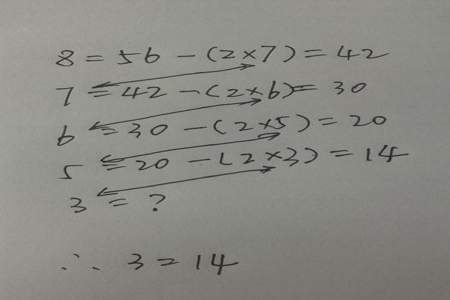 8 = 56 - (2×7) = 42
7 = 42 - (2×6) = 30
6 = 30 - (2×5) = 20
5 = 20 - (2×3) = 14
3 = ?
∴ 3 = 14